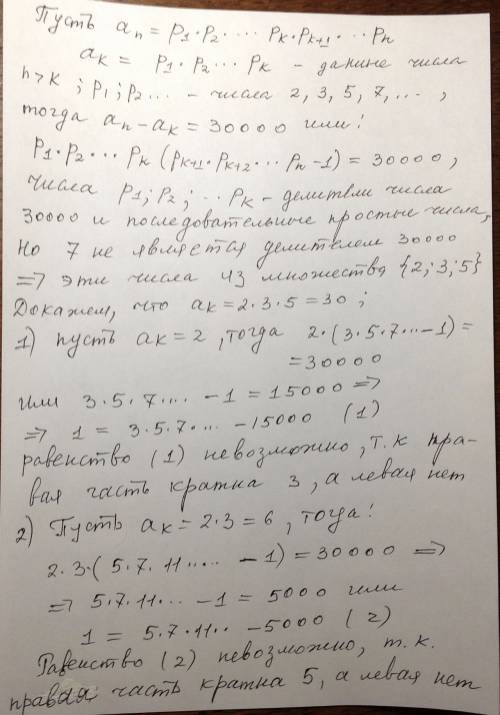 Пусть aₙ = p₁·p₂· ···· pₖ·pₖ₊₁· ·· pₙ
aₖ = p₁·p₂··· pₖ - данные числа
n>k ; p₁; p₂... - числа 2, 3, 5, 7, ... ,
тогда aₙ-aₖ = 30000 или!
p₁·p₂··· pₖ (pₖ₊₁·pₖ₊₂··· pₙ -1) = 30000,
числа p₁; p₂; ·· pₖ - делители числа
30000 и последовательные простые числа,
Но 7 не является делителем 30000
=> эти числа из множества {2; 3; 5}
Докажем, что aₖ = 2·3·5 = 30 ;
1) пусть aₖ = 2, тогда 2·(3·5·7·...-1) =
= 30000
или 3·5·7·... - 1 = 15000 =>
=> 1 = 3·5·7·... -15000 (1)
равенство (1) невозможно, т.к пра-
вая часть кратна 3, а левая нет
2) Пусть aₖ = 2·3 = 6, тогда!
2·3·(5·7·11..... -1) = 30000 =>
=> 5·7·11·.. -1 = 5000 или
1 = 5·7·11·. -5000 (2)
Равенство (2) невозможно, т.к.
правая часть кратна 5, а левая нет